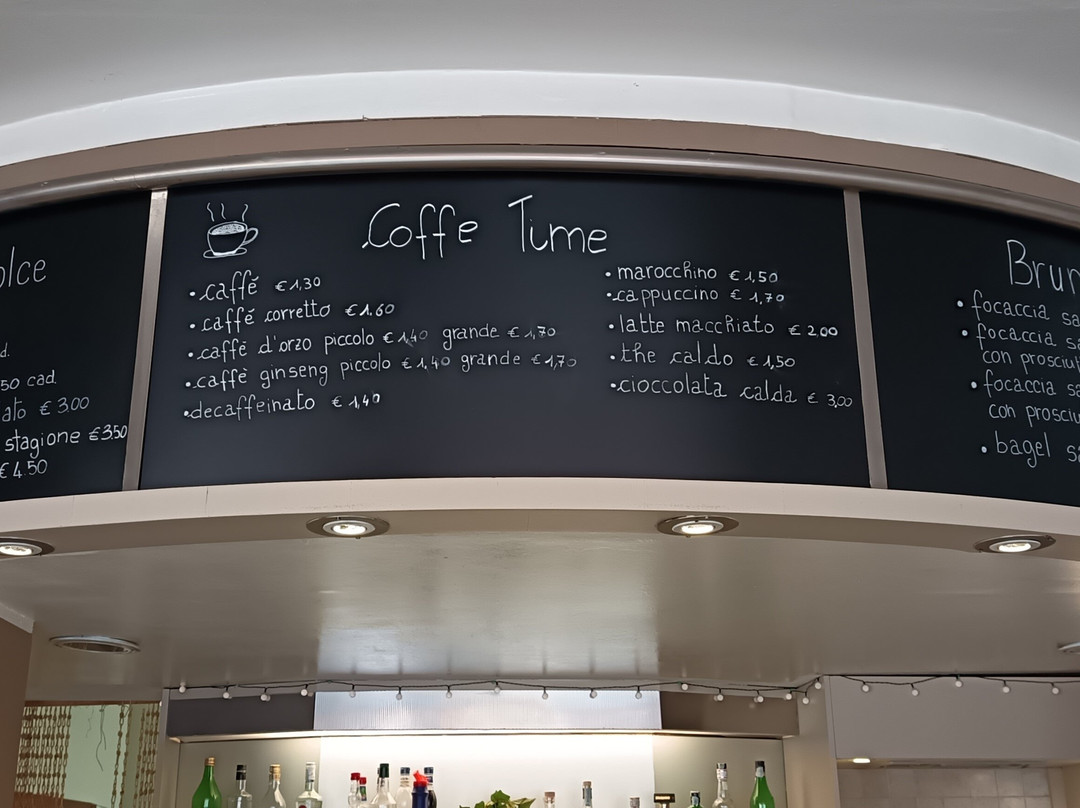 olce
d.
50 cad.
ato € 3.00
stagione € 3.50
€ 4.50
Coffe Time
• caffé € 1,30
• caffé corretto € 1,60
• caffè d'orzo piccolo € 1,40 grande € 1,70
• caffè ginseng piccolo € 1,40 grande € 1,70
• decaffeinato € 1,40
• marocchino € 1,50
• cappuccino € 1,70
• latte macchiato € 2,00
• the caldo € 1,50
• cioccolata calda € 3,00
Brun
• focaccia sa
• focaccia sa
con prosciut
• focaccia sa
con prosciu
• bagel sa